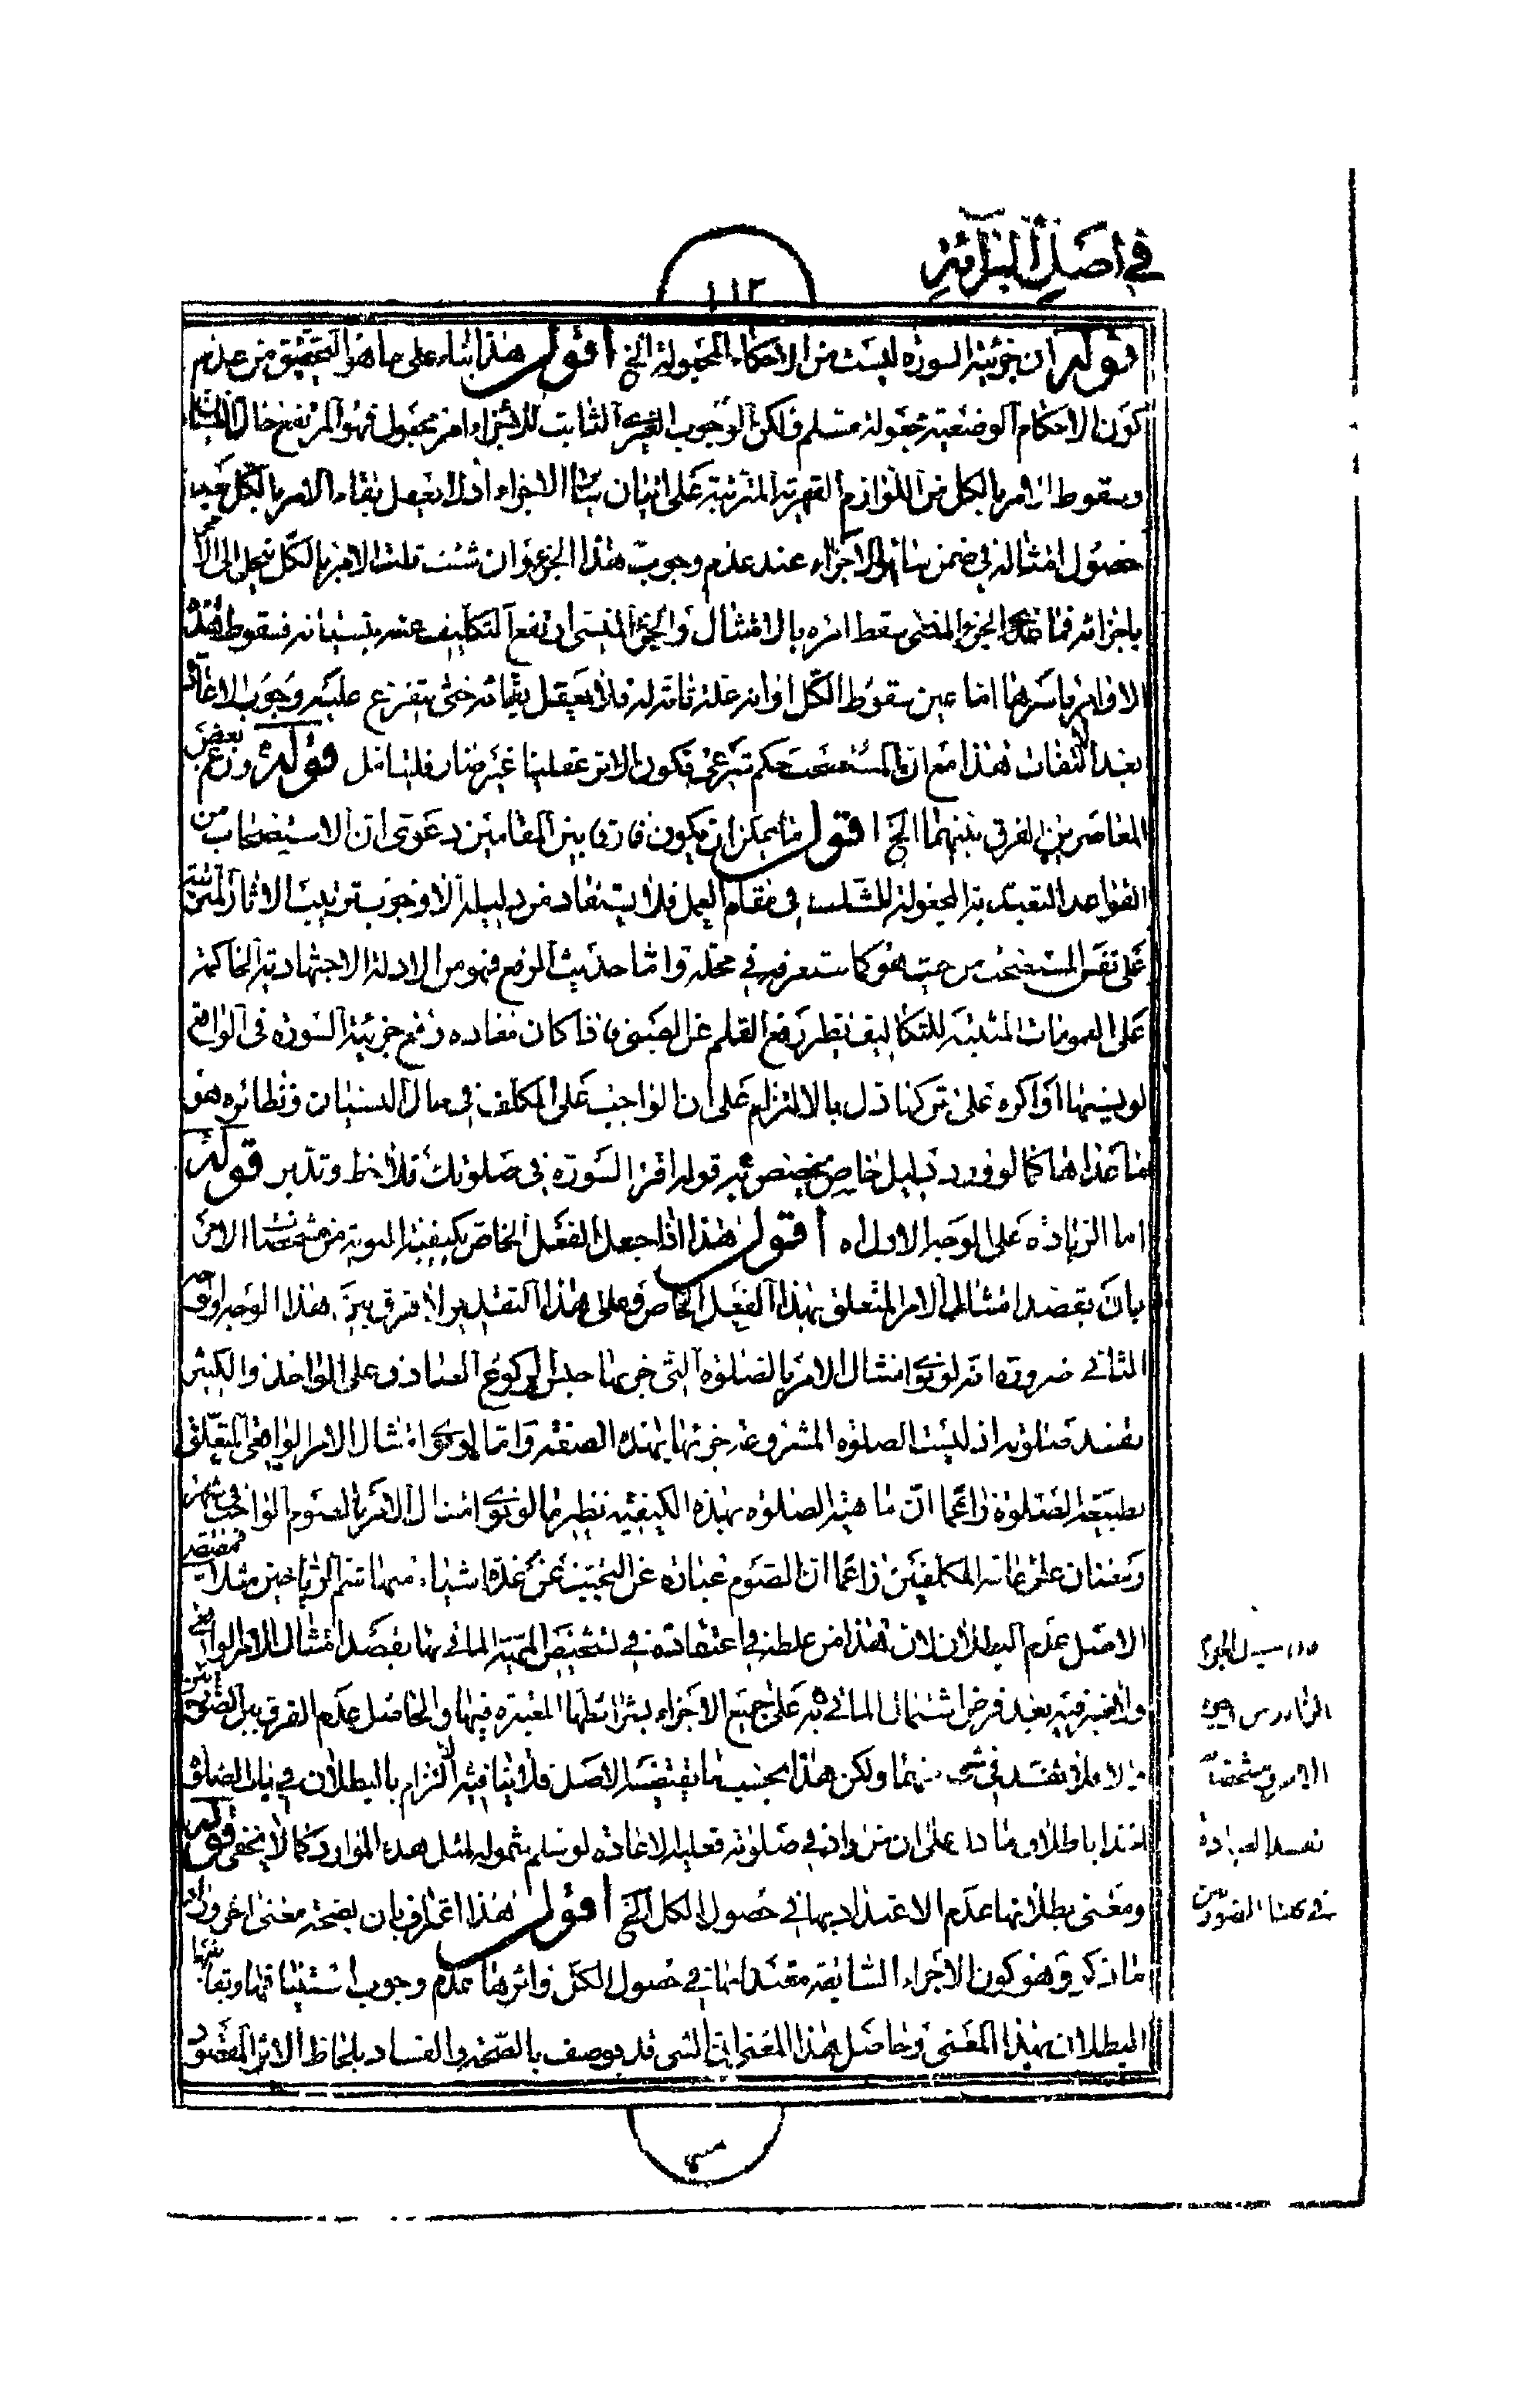 في اصل البرائة
١١٢
قوله ان جزئية السورة ليست من الاحكام المجعولة الخ اقول هذا بناء على ما هو التحقيق من عدم
كون الاحكام الوضعية مجعولة مسلم ولكن الوجوب الغيرى الثابت للاجزاء امر مجعول فهو المرتفع حال النسيان
وسقوط الامر بالكل من اللوازم القهرية المترتبة على اتيان سائر الاجزاء اذ لا يعقل بقاء الامر بالكل بعد
حصول امتثاله في ضمن سائر الاجزاء عند عدم وجوب هذا الجزء وان شئت قلت الامر بالكل ينحل الى الامر
باجزائه فما عدى الجزء المنسى سقط امره بالامتثال والجزء المنسى ارتفع التكليف عنه بنسيانه فسقوط هذه
الاوامر باسرها اما عين سقوط الكل او انه علة تامة له فلا يعقل بقائه حتى يتفرع عليه وجوب الاعادة
بعد الالتفات هذا مع ان المستصحب حكم شرعى فكون الاثر عقليا غير ضار فليتامل قوله وزعم بعض
المعاصرين الفرق بينهما الخ اقول ما يمكن ان يكون فارقا بين المقامين دعوى ان الاستصحاب من
القواعد التعبدية المجعولة للشاك في مقام العمل فلا يستفاد من دليله الا وجوب ترتيب الاثار المترتبة
على نفس المستصحب من حيث هو كما ستعرفه في محله واما حديث الرفع فهو من الادلة الاجتهادية الحاكمة
على العمومات المثبتة للتكاليف نظير رفع القلم عن الصبى فاذا كان مفاده رفع جزئية السورة في الواقع
لو نسيها او اكره على تركها دل بالالتزام على ان الواجب على المكلف في حال النسيان ونظائره هو
ما عداها كما لو ورد دليل خاص مخصص به قوله اقرء السورة في صلوتك فلاحظ وتدبر قوله
اما الزيادة على الوجه الاول اه اقول هذا اذا جعل الفعل الخاص بكيفيته المنوية من مشخصات الامر
بان يقصد امتثال الامر المتعلق بهذا الفعل الخاص وعلى هذا التقدير لا فرق بين هذا الوجه والوجه
الثاني ضرورة انه لو نوى امتثال الامر بالصلوة التى جزئها جنس الركوع الصادق على الواحد والكثير
تفسد صلوته اذ ليست الصلوة المشروعة جزئها بهذه الصفة واما لو نوى امتثال الامر الواقعى المتعلق
بطبيعة الصلوة زاعما ان ماهية الصلوة بهذه الكيفية نظير ما لو نوى امتثال الامر بالصوم الواجب في شهر
رمضان على عامة المكلفين زاعما ان الصوم عبارة عن التجنب عن عدة اشياء منها شم الرياحين مثلا فمقتضى
الاصل عدم البطلان لان هذا من غلطه في اعتقاده في تشخيص المهية الماتى بها بقصد امتثال الامر الواقعى
ولا ضير فيه بعد فرض اشتمال الماتى به على جميع الاجزاء بشرائطها المعتبرة فيها والحاصل عدم الفرق بين الصورتين
فلا تفسد في شىء منهما ولكن هذا بحسب ما يقتضيه الاصل فلا ينافيه التزام بالبطلان في باب الصلوة
ومعنى بطلانها عدم الاعتداد بها في حصول الكل الخ اقول هذا اعتراف بان لصحة معنى اخر وراء
ما ذكره وهو كون الاجزاء السابقة معتدا بها في حصول الكل واثرها عدم وجوب استينافها ويقابلها
البطلان بهذا المعنى وحاصل هذا المعنى ان الشىء قد يوصف بالصحة والفساد بلحاظ الاثر المقصود
تفسد العبادة
في هذا الصورتين